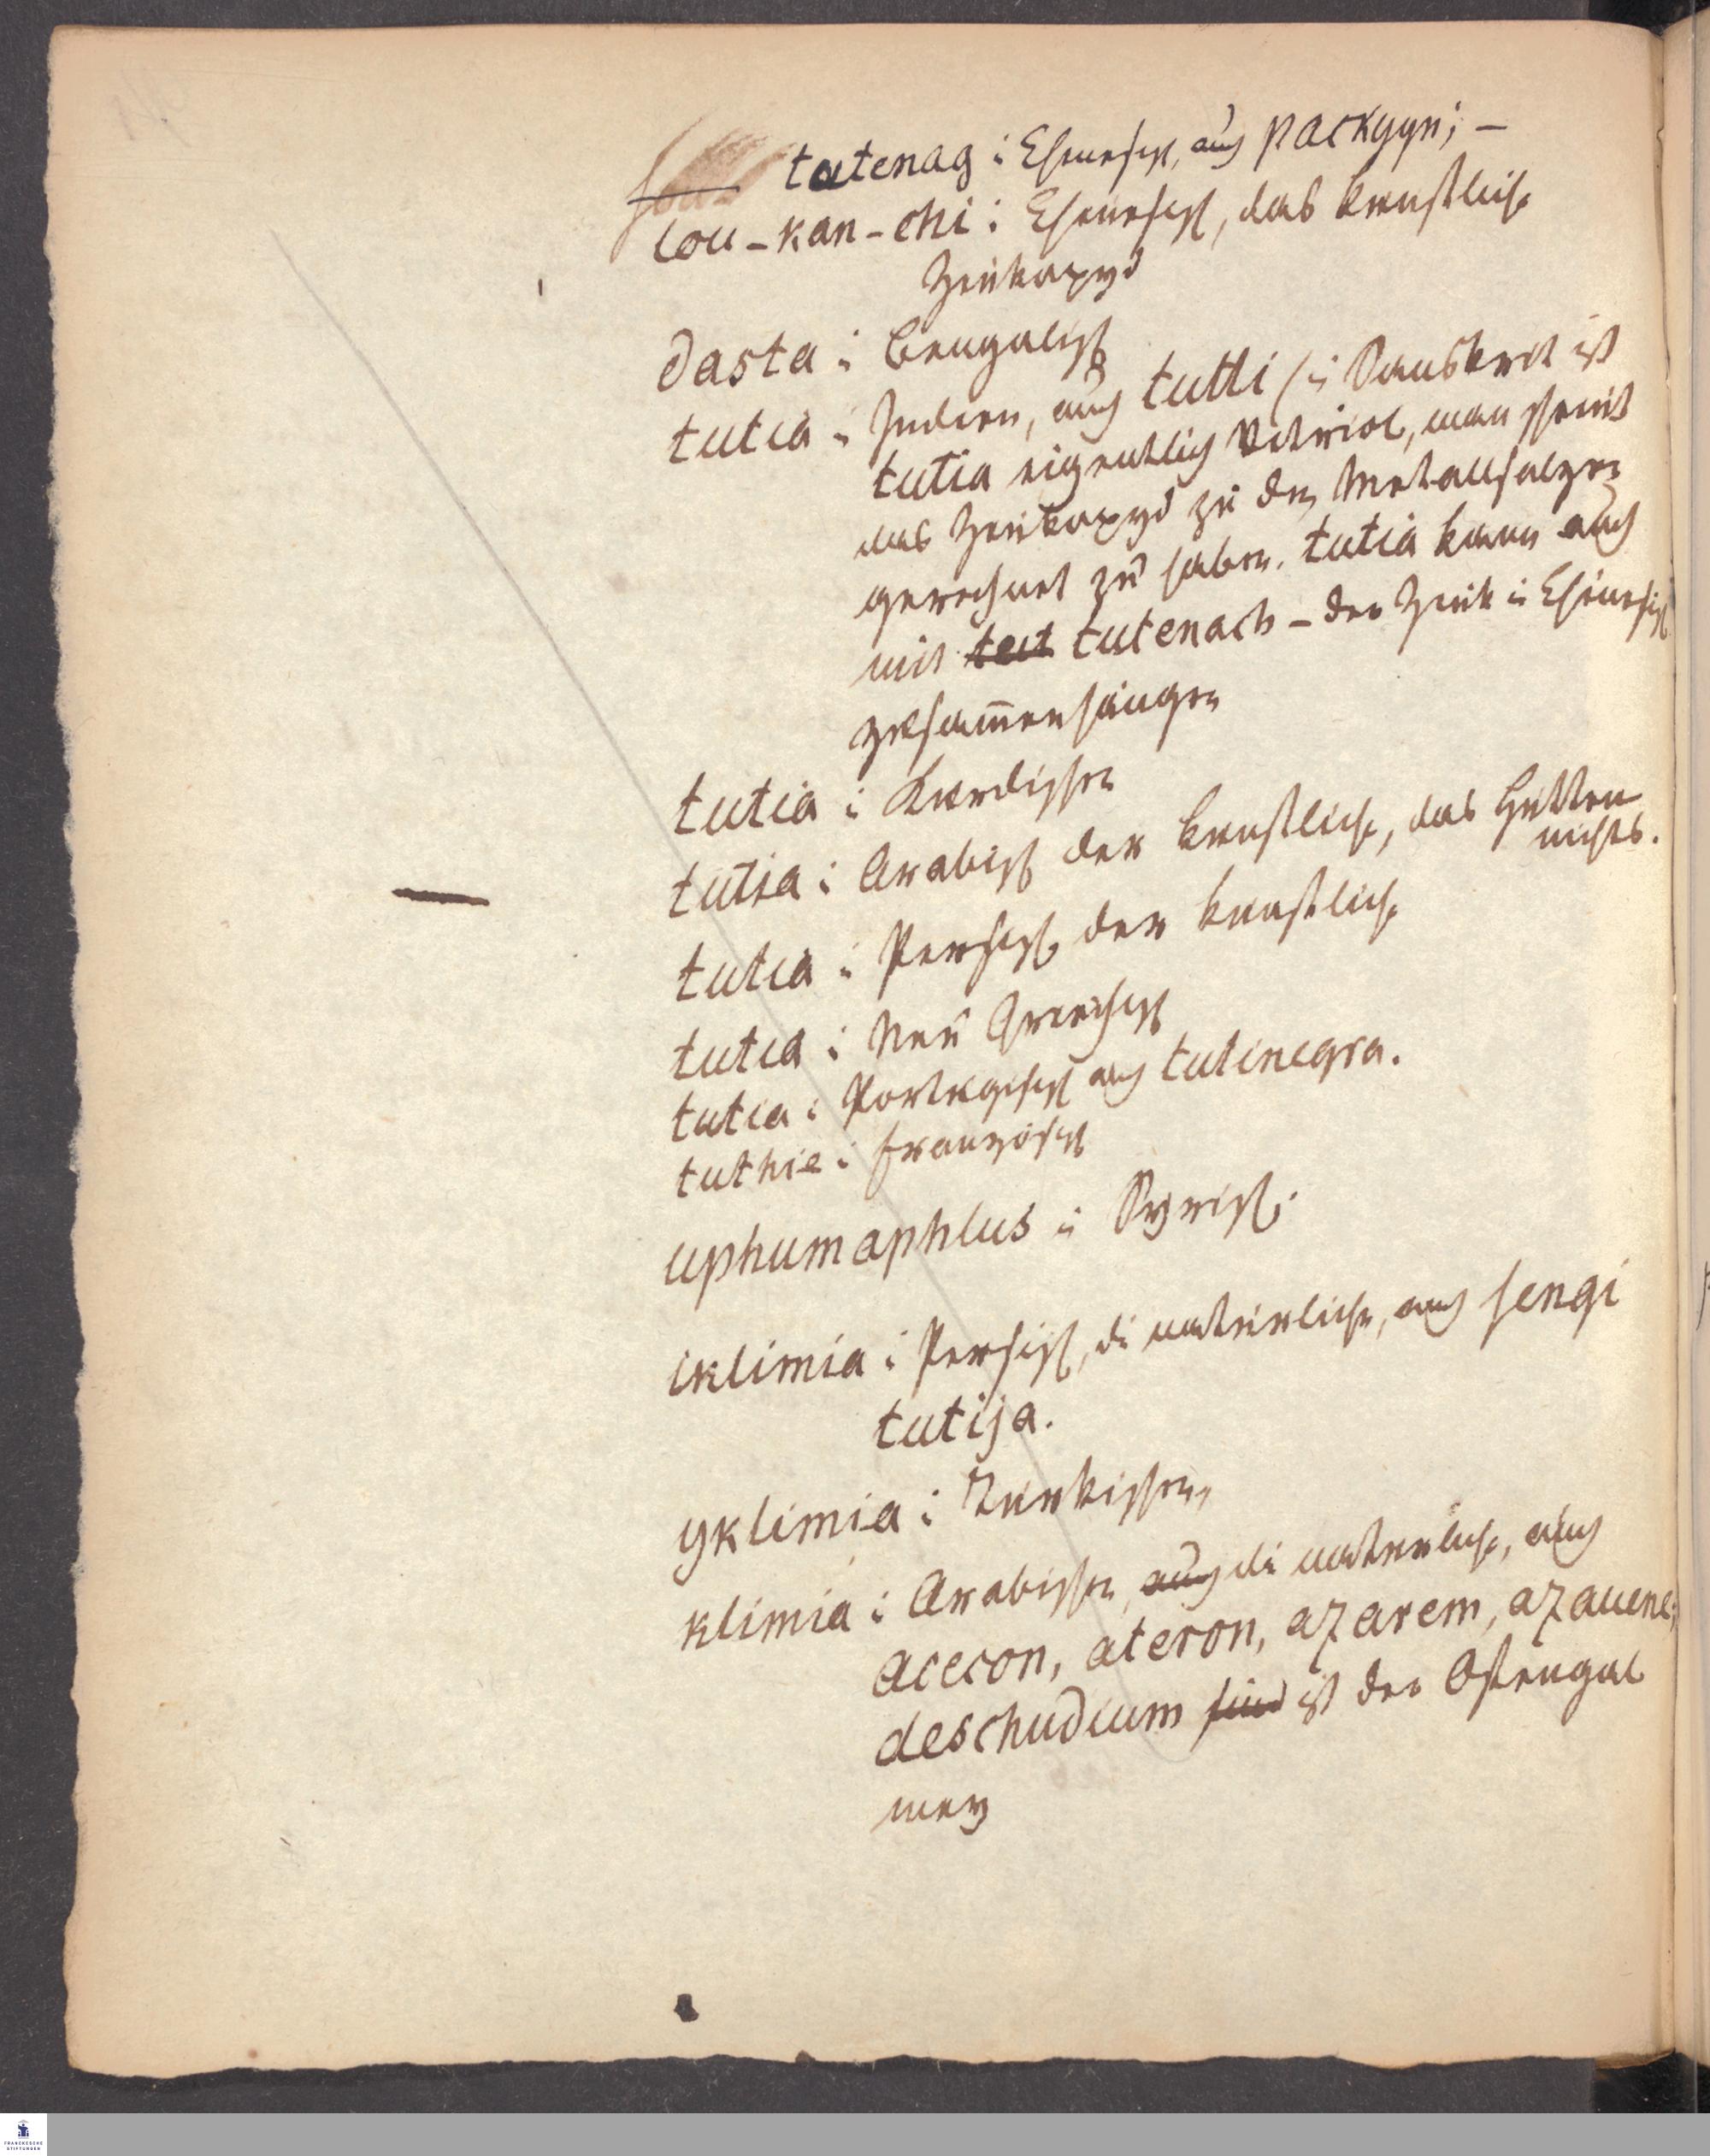 tutenag i Chinesisch, auch packyyn; –
lou-kan-chi i Chinesisch, das kunstliche
Zinkoxyd
dasta i Bengalisch
tutia i Indien, auch tutti (in Sanskrit ist
tutia eigentlich Vitriol, man scheint
das Zinkoxyd zu den Metallsalzen
gerechnet zu haben. tutia kann auch
mit tut tutenach – der Zink in Chinesisch
zusam̅enhängen
tutia i Kurdischen
tutia i Arabisch der kunstliche, das Hütten
nichts.
tutia i Persisch der kunstliche
tutia i Neu Griechisch
tutia i Portugisisch auch tutinegra.
tuthie i französisch
uphumaphlus i Syrisch.
iklimia i Persisch, di naturliche, auch sengi
tutija.
yklimia i Turkischen,
klimia i Arabischen, auch di naturliche, auch
acecon, ateron, azarem, azauene;
deschudium sind ist der Ofengal
mey
FRANCKESCHE
STIFTUNGEN